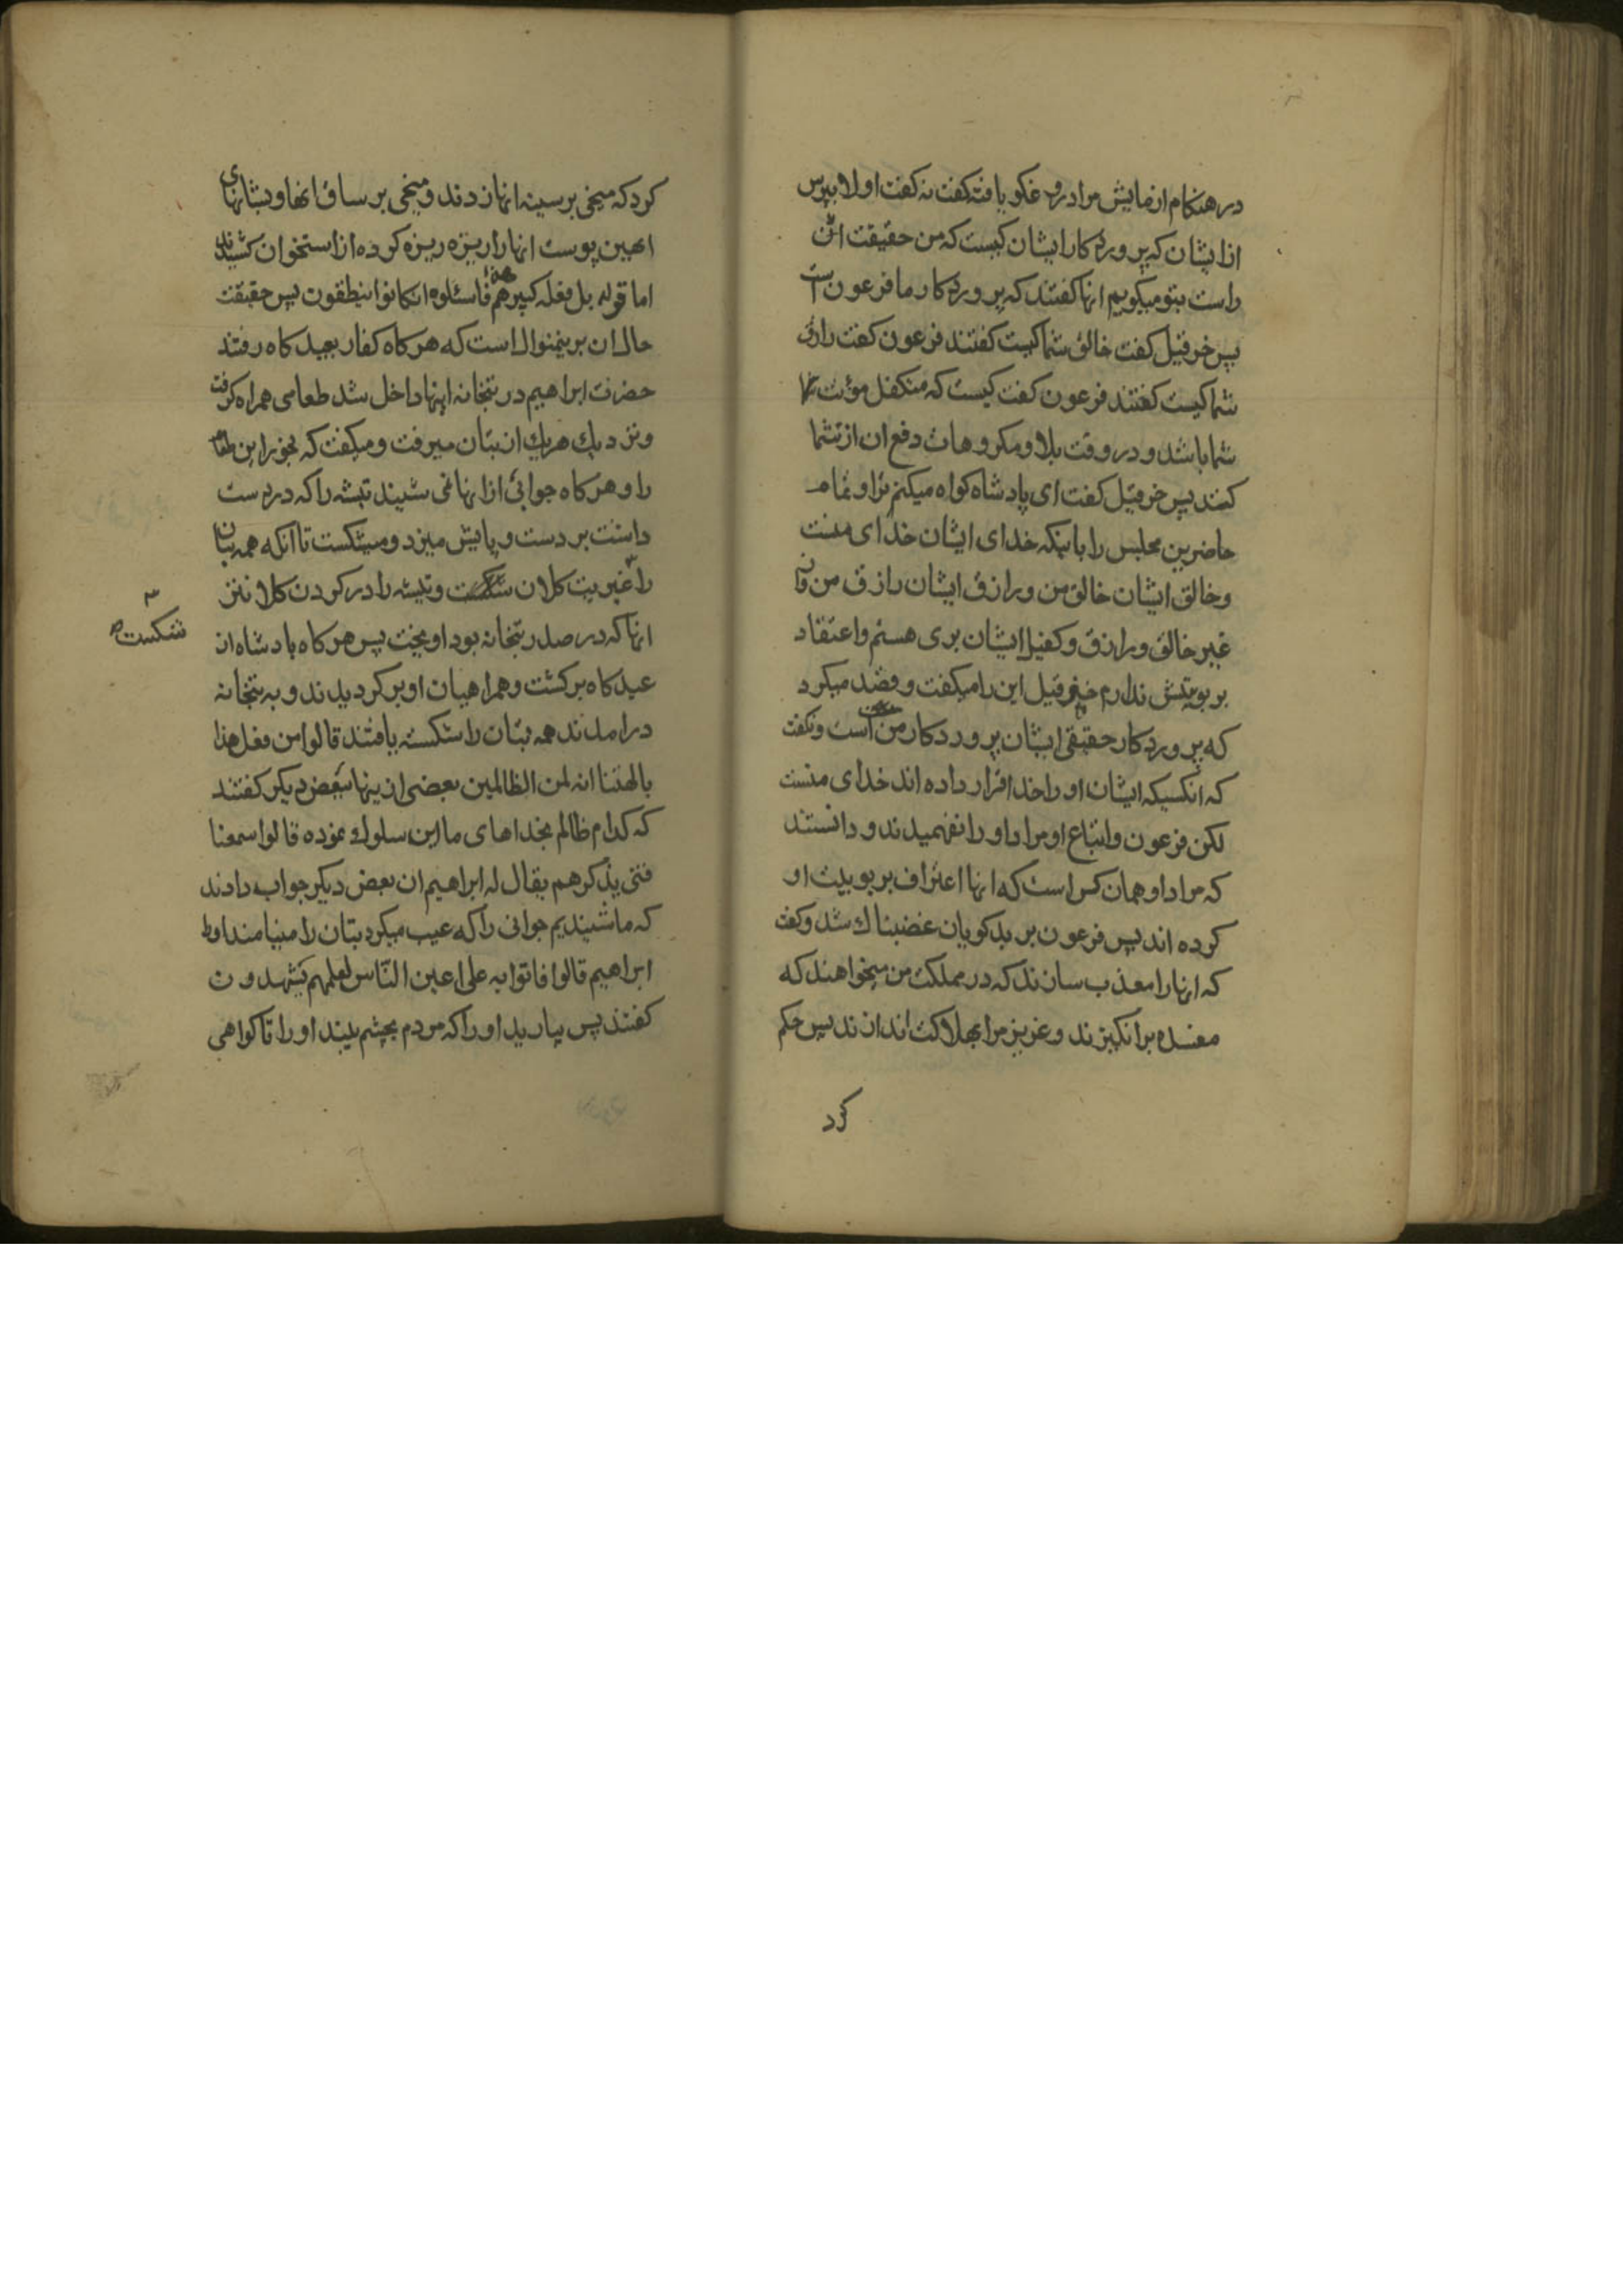 در هنکام ازمایش مرا دروغکو یافتهٔ کفت نه کفت اولا بپرس
از ایشان که پروردکار ایشان کیست که من حقیقت ان
راست بتو میکویم انها کفتند که پروردکار ما فرعون است
پس خرقیل کفت خالق شما کیست کفتند فرعون کفت رازق
شما کیست کفتند فرعون کفت کیست که متکفل مؤنت
شما باشد و در وقت بلا و مکروهات دفع ان از شما
کند پس خرقیل کفت ای پادشاه کواه میکنم ترا و تمام
حاضرین مجلس را باینکه خدای ایشان خدای منست
و خالق ایشان خالق من و رازق ایشان رازق من و از
غیر خالق و رازق و کفیل ایشان بری هستم و اعتقاد
بربوبیتش ندارم خرقیل این را میکفت و قصد میکرد
که پروردکار حقیقی ایشان پروردکار من است و نکفت
که انکسیکه ایشان او را خدا قرار داده اند خدای منست
لکن فرعون و اتباع او مراد او را نفهمیدند و دانستند
که مراد او همان کس است که انها اعتراف بربوبیت او
کرده اند پس فرعون بر بدکویان غضبناک شد و کفت
که انها را معذب سازند که در مملکت من میخواهند که
مفسده برانکیزند و عزیز مرا بهلاکت اندازند پس حکم
کرد
کرد که میخی بر سینه انها زدند و میخی بر ساق انها و بشانهای
اهنین پوست انها را ریزه ریزه کرده از استخوان کشیدند
اما قوله بل فعله کبیرهم هذا فاسئلوهم ان کانوا ینطقون پس حقیقت
حال ان برینمنوال است که هر کاه کفار بعید کاه رفتند
حضرت ابراهیم در بتخانه اینها داخل شد طعامی همراه کرفت
و نزدیک هر یک از بتان میرفت و میکفت که بخور این طعام
را و هر کاه جوابی از انها نمی شنید تیشه را که در دست
داشت بر دست و پایش میزد و میشکست تا انکه همه بتان
را غیر بت کلان شکست و تیشه را در کردن کلانتر
شکست
انها که در صدر بتخانه بود اویخت پس هر کاه بادشاه از
عید کاه برکشت و همراهیان او برکردیدند و به بتخانه
درامدند همه بتان را شکسته یافتند قالوا من فعل هذا
بالهتنا انه لمن الظالمین بعضی از ینها ببعض دیکر کفتند
که کدام ظالم بخداهای ما این سلوک نموده قالوا سمعنا
فتی یذکرهم یقال له ابراهیم ان بعض دیکر جواب دادند
که ما شنیدیم جوانی را که عیب میکرد بتان را مینامند او را
ابراهیم قالوا فاتوا به علی اعین النّاس لعلهم یشهدون
کفتند پس بیارید او را که مردم بچشم بینند او را تا کواهی